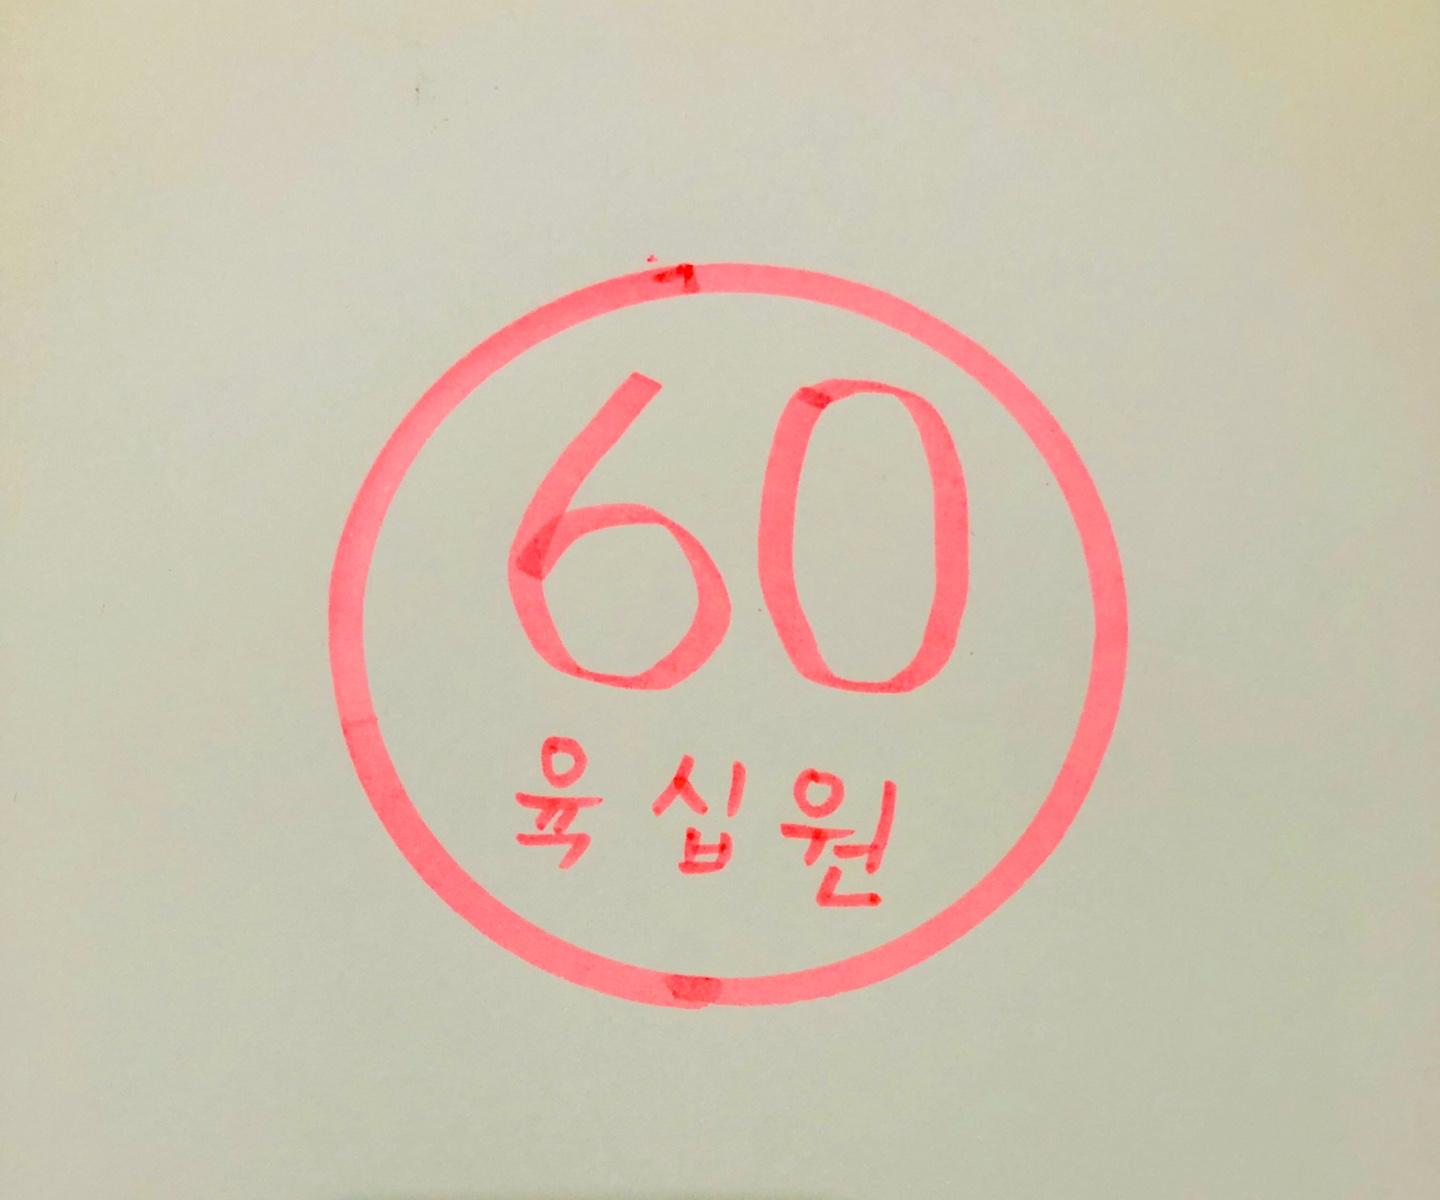 60
육십원